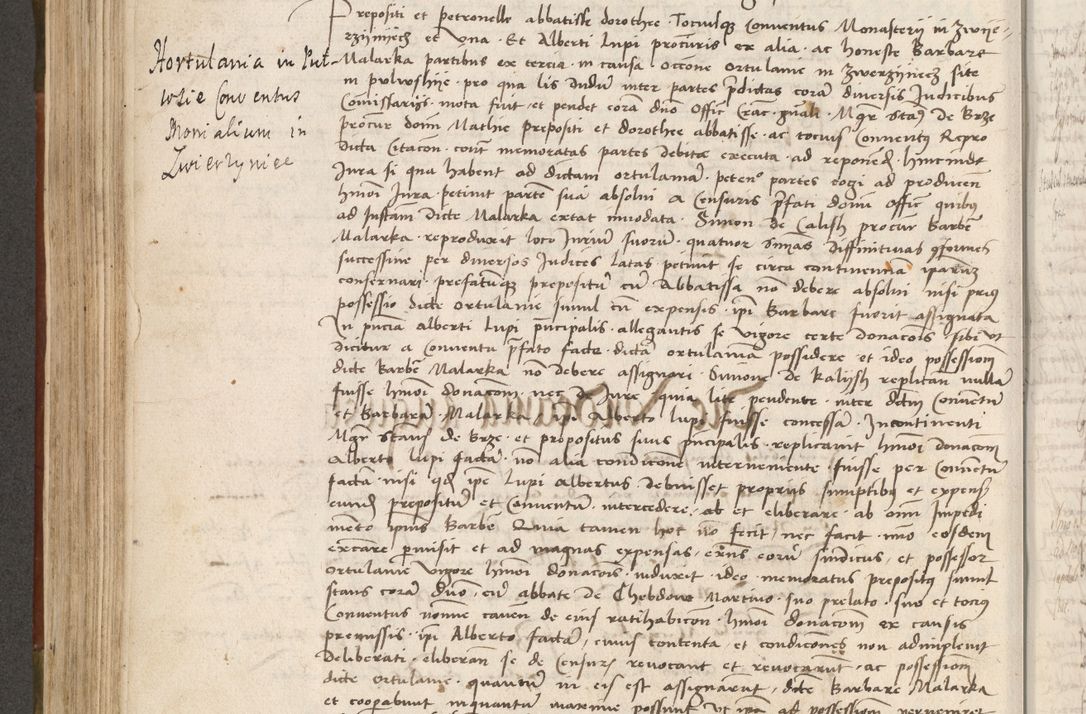 Hortulania in Pul-
Conventus
Monialium in
Zwierzyniec
Prepositi et Petronelle abbatisse dorothee Tociusq Conventus Monasterij in Zwije-
rzijnijecz et Vna Et Alberti Lupi procuris ex alia ac honeste Barbare
Malarka partibus ex tercia in causa Occone ortulanie in Zwerzijnecz site
in pulwoshije pro qua lis dudum inter partes pdictas coram diversis Judicibus
Comissarijs mota fuit et pendet cora dno Offic Crac gnali Mgr Sta de Brze
procur domi Mathie prepositi et dorothee abbatisse ac tocius Conventus Repro
dicta Citacon memoratas partes debite executa ad reponed hincinde
Jura si qua habent ad dictam ortulania peteno partes cogi ad producen
hmoi Jura petiuit parte sua absolui a Censuris pfati domi Offic quibus
ad Instam Dicte Malarka extat innodata Simon de Calish procur Barbe
Malarka reproduxit loco Jurium suoru quatuor Smas Diffinitivas
successive per diversos Judices latas petiuit se circa continenciam iparum
conservari prefatumque prepositu cu Abbatissa no debere absolui nisi prius
possessio dicte ortulanie simul cu expensis ipi Barbare fuerit assignata
In pncia Alberti Lupi pncipalis allegantis se vigore certe donacois sibi vt
dicitur a Conventu pfato facte dicta ortulaniam possidere et ideo possessionem
dicte Barbe Malarka no debere assignari Simone de Kalijsh replican nulla
fuisse hmoi donacom nec de Jure quia lite pendente inter dcm Conventum
et Barbara Malarka ipi Alberto lupi fuisse concessam Incontinenti
Mgr Staus de Brze et prepositus suus pncipalis replicavit hmoi donacom
Alberto lupi facta no alia condicone interveniente fuisse per Conventu
facta nisi qd ipe Lupi Albertus debuisset proprijs sumptibus et expens
eund prepositu et Conventum intercedere ab et eliberare ab omi Impedi
meto ipius Barbe Qiua tamen hoc no fecit nec facit imo eosdem
excare pmisit et ad magnas expensas eoru sindicus et possessor
ortulanie vigore hmoi donacois induxit ideo memoratus prepositus simul
stans cora dno cu abbate de Chebdove Martino suo prelato suo et tocius
Conventus nomine caven de eius ratihabicon hmoi donacom ex causis
premissis ipi Alberto facta cuius contenta et condicones non adimplevit
Deliberati eliberan se de Censur revocant et revocarut ac possessionem
dicte ortulanie quantum in eis est assignarut dicte Barbare Malarka
et cooperabunt inquantum maxime possunt vt ad possessionem perveniret